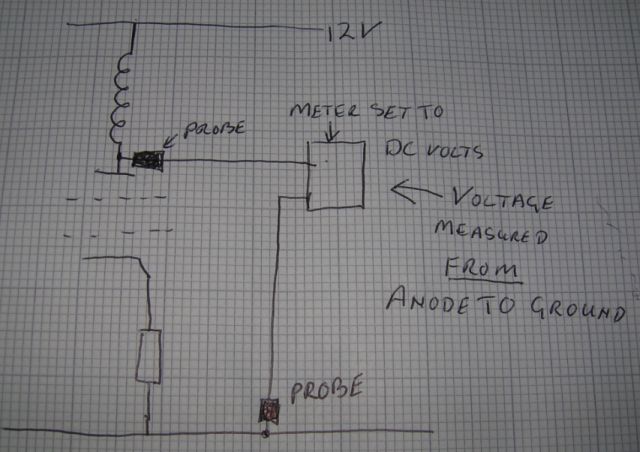 12V
METER SET TO
PROBE
DC VOLTS
VOLTAGE
MEASURED
FROM
ANODE TO GROUND
PROBE